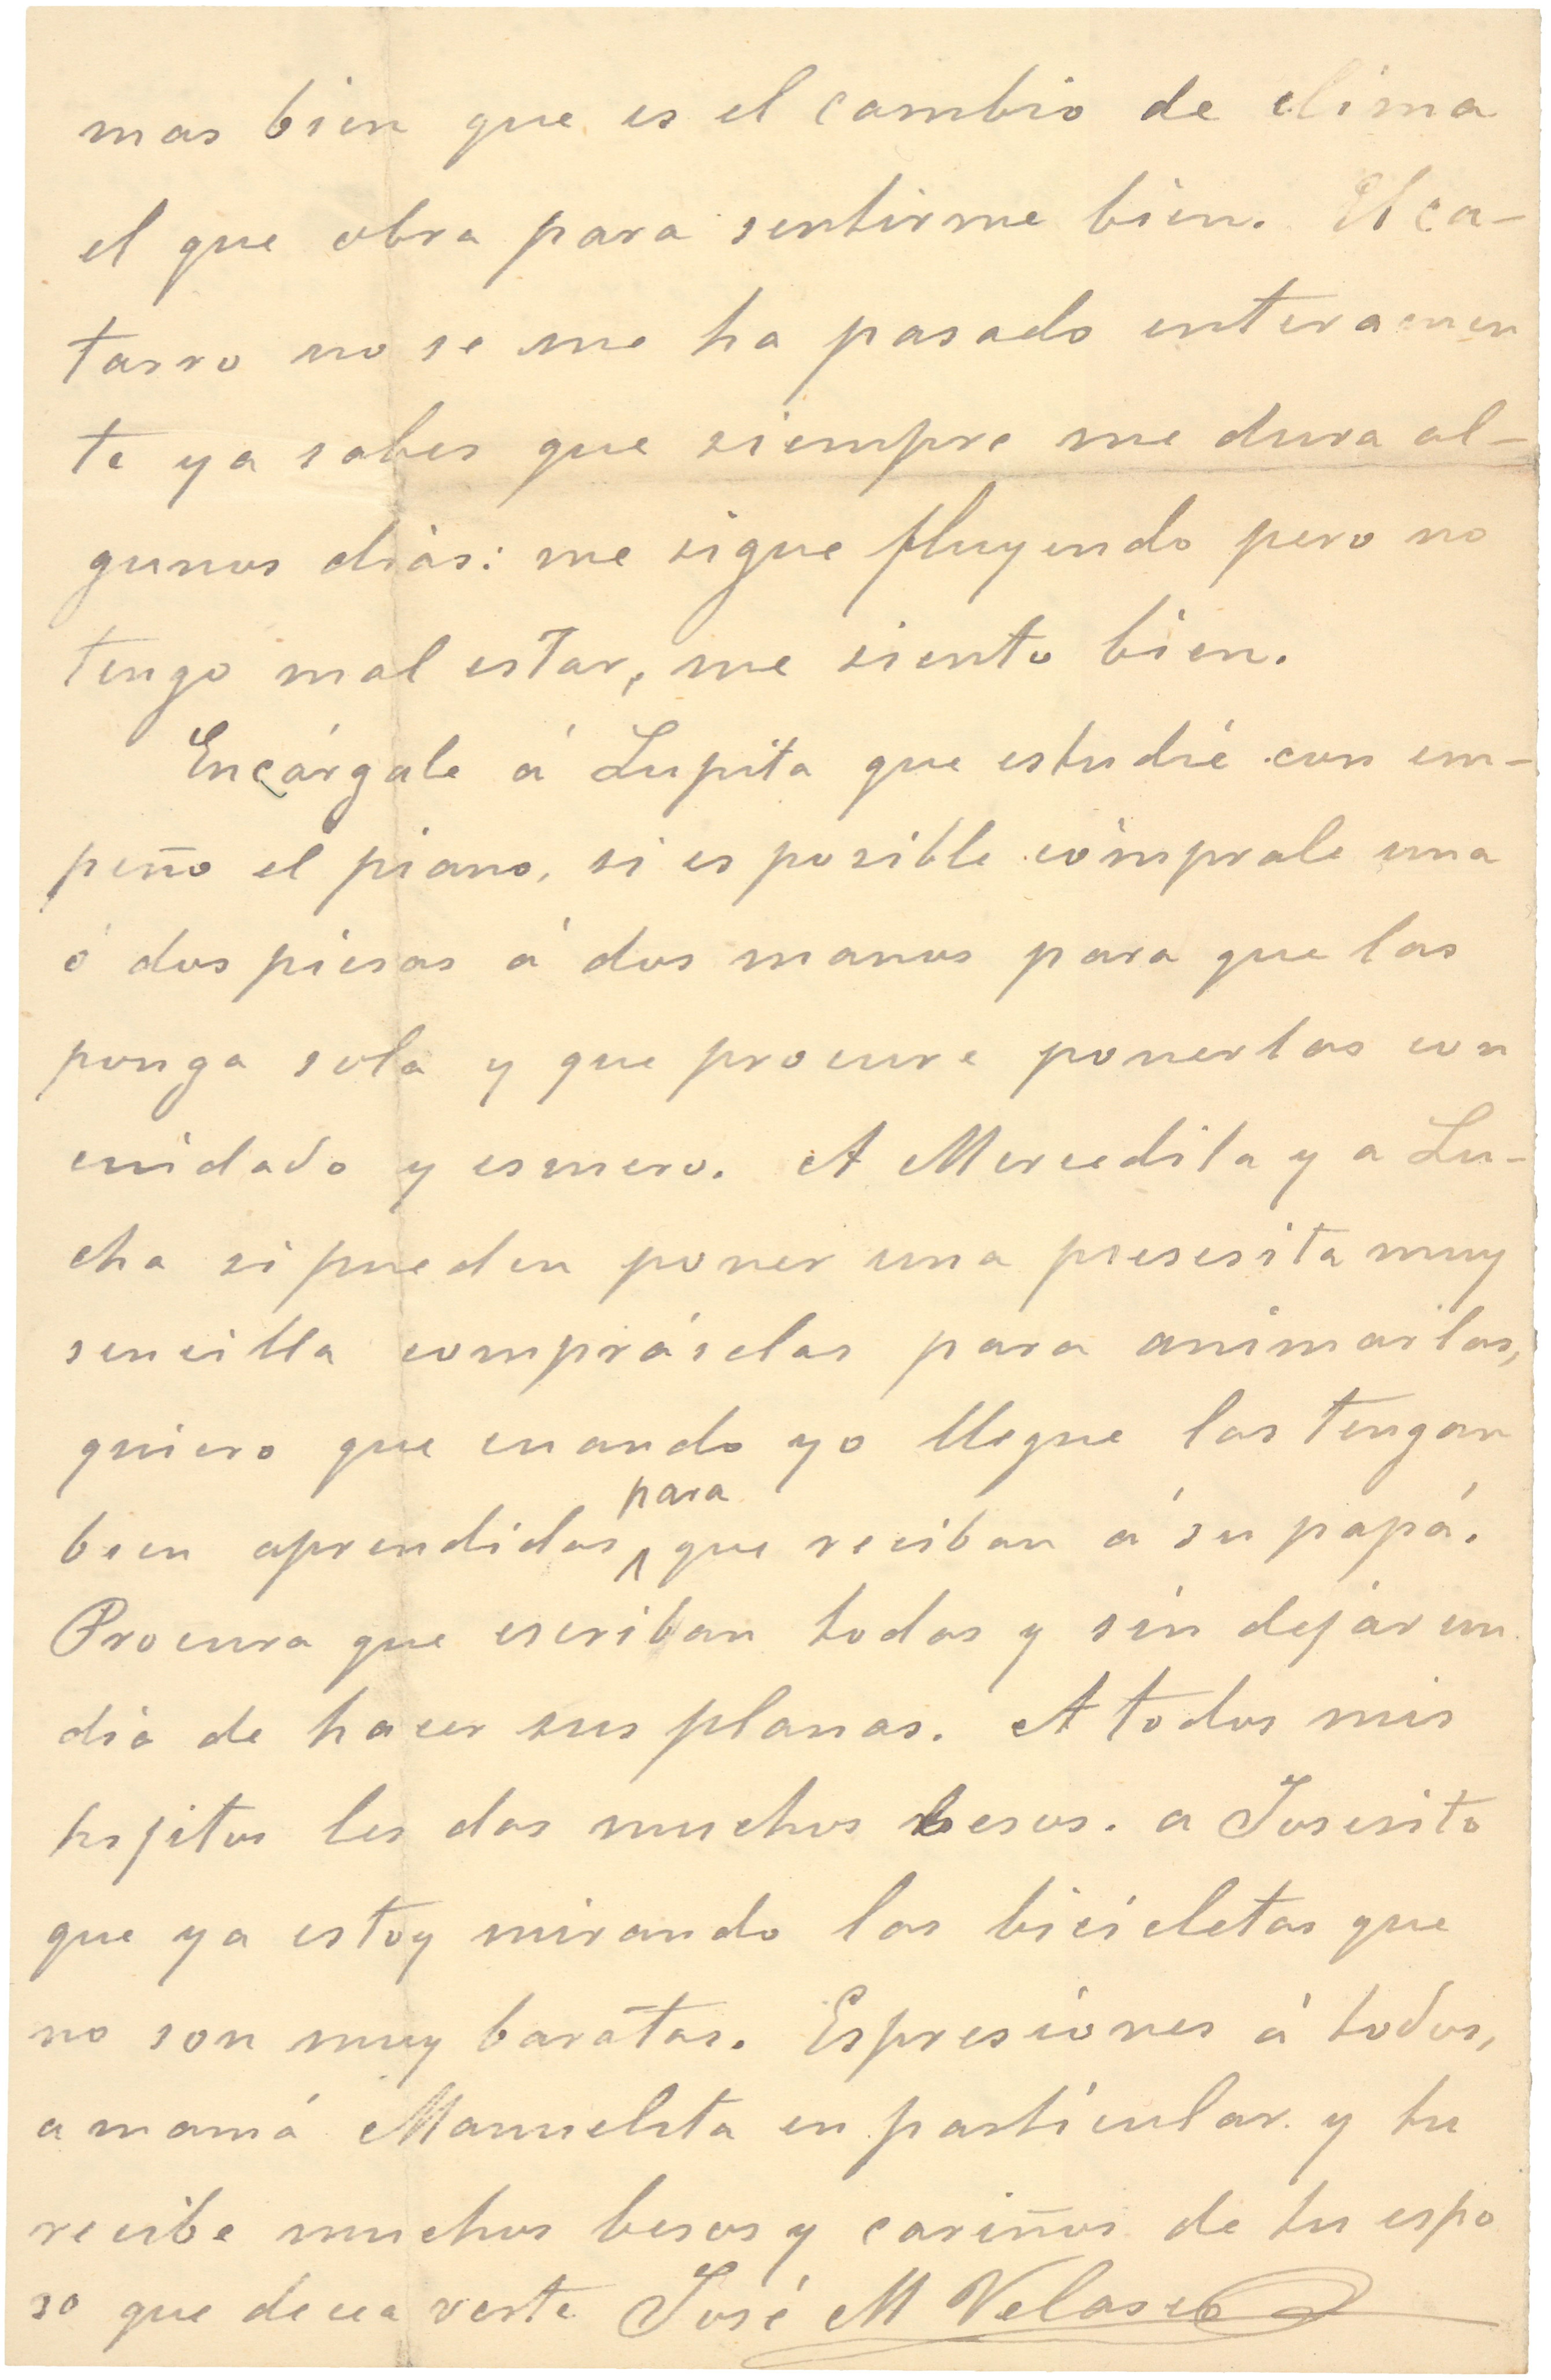 mas bien que es el cambio de clima
el que obra para sentirme bien. El ca-
tarro no se me ha pasado enteramen
te ya sabes que siempre me dura al-
gunos dias: me sigue fluyendo pero no
tengo mal estar, me siento bien.
Encárgale á Lupita que estudié con em-
peño el piano, si es posible cómprale una
ó dos piesas á dos manos para que las
ponga sola y que procure ponerlas con
cuidado y esmero. A Mercedita y a Lu-
cha si pueden poner una piesesita muy
sencilla compráselas para animarlas,
quiero que cuando yo llegue las tengan
bien aprendidas para que reciban á su papá.
Procura que escriban todas y sin dejar un
dia de hacer sus planas. A todos mis
hijitos les das muchos besos. a Josesito
que ya estoy mirando las bicicletas que
no son muy baratas. Espresiones á todos,
a mamá Manuelita en particular y tu
recibe muchos besos y cariños de tu espo
so que decea verte José M Velasco